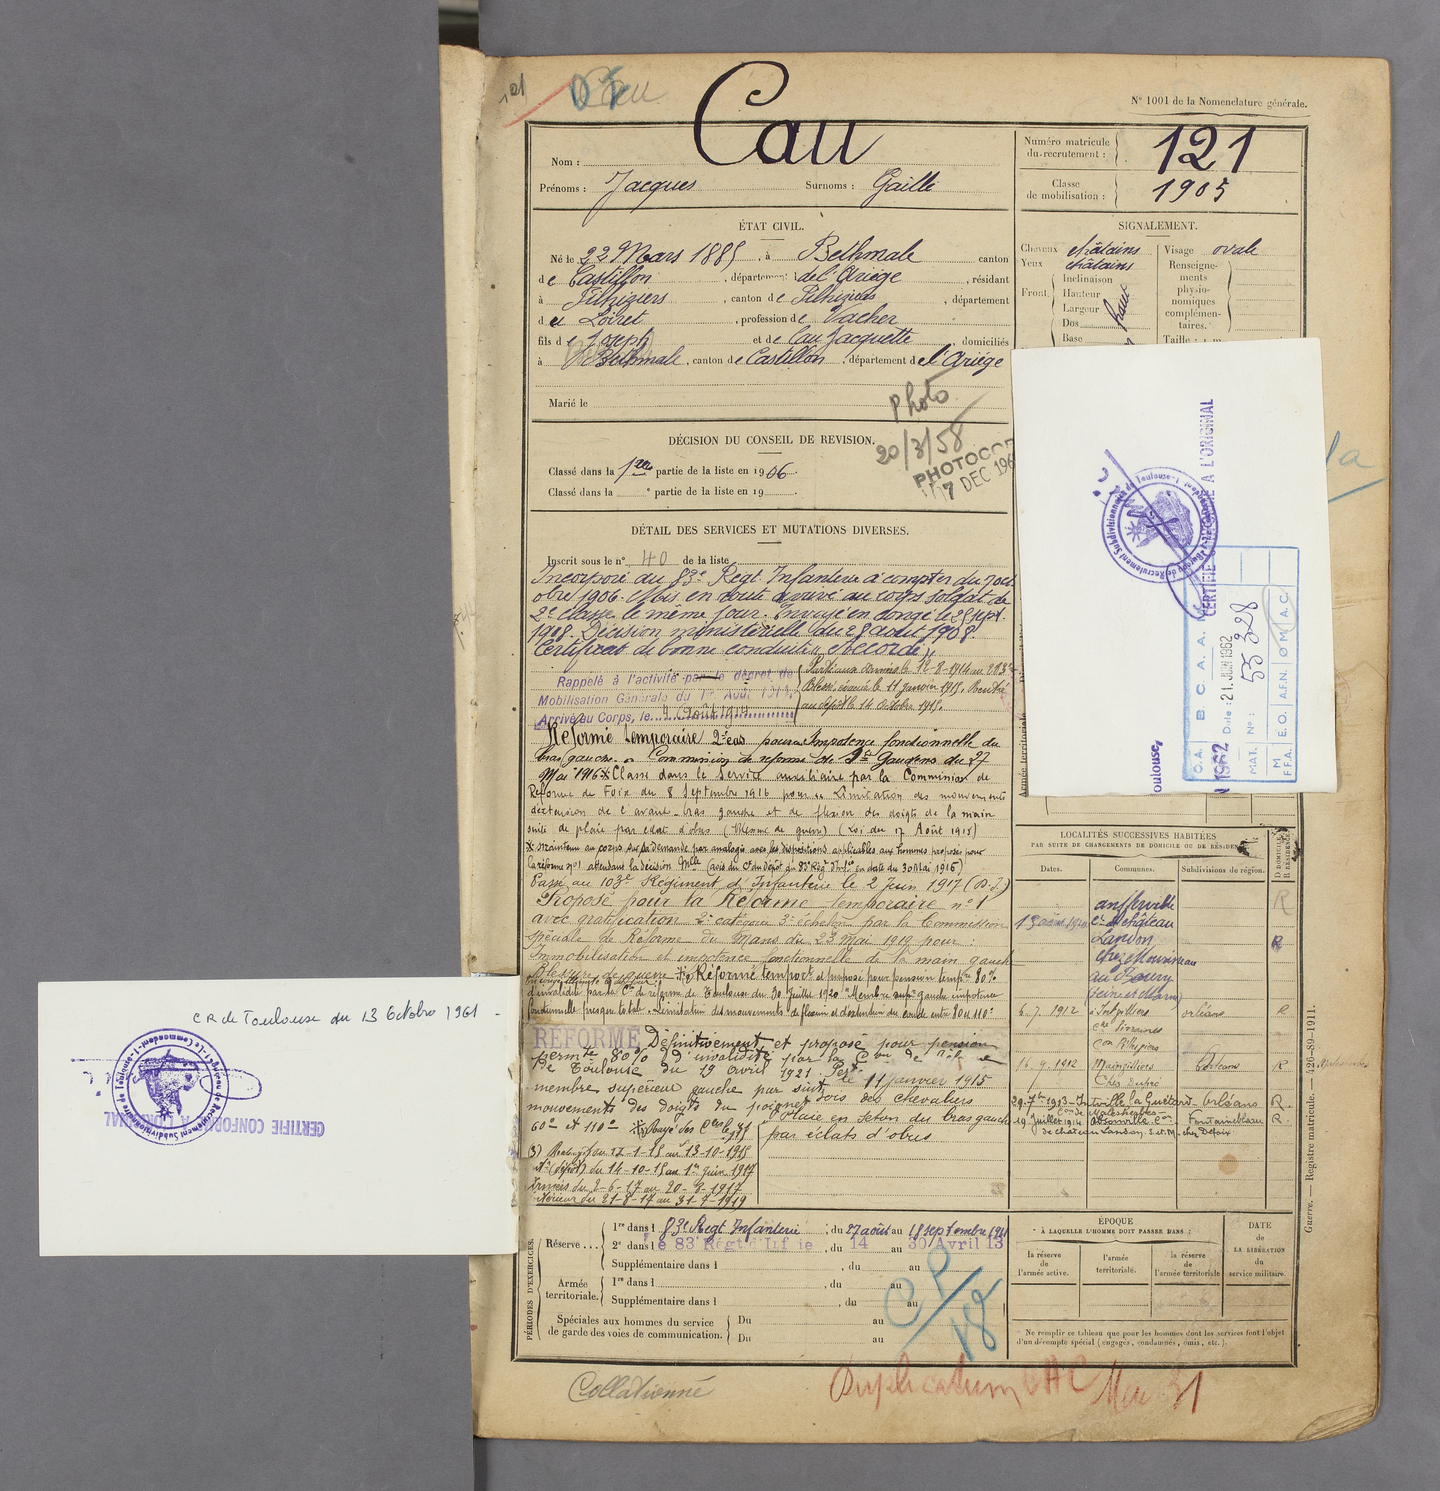 121
N° 1001 de la Nomenclature générale.
Nom : Cau
Prénoms : Jacques Surnoms : Gaillé
Numéro matricule du recrutement : 121
Classe de mobilisation : 1905
ÉTAT CIVIL.
Né le 22 Mars 1885, à Bethmale canton
de Castillon, département de l'Ariège, résidant
à Pithiviers, canton de Pithiviers, département
du Loiret, profession de Vacher
fils de Joseph et de Cau Jacquette, domiciliés
à Bethmale, canton de Castillon, département de l'Ariège
Marié le
Photo
20/3/58
PHOTOCOP
7 DEC 196
SIGNALEMENT.
Cheveux châtains
Yeux châtains
Front. Inclinaison
Hauteur
Largeur
Dos
Base
Visage ovale
Renseignements physionomiques complémentaires.
Taille : 1 m.
DÉCISION DU CONSEIL DE REVISION.
Classé dans la 1ère partie de la liste en 1906.
Classé dans la e partie de la liste en 19
DÉTAIL DES SERVICES ET MUTATIONS DIVERSES.
Inscrit sous le n° 40 de la liste
Incorporé au 83e Régt Infanterie à compter du 7 oct
obre 1906. Mis en route arrivé au corps soldat de
2e classe le même jour. Envoyé en congé le 25 sept.
1908. Décision ministérielle du 28 août 1908.
Certificat de bonne conduite "Accordé"
Rappelé à l'activité par le décret de
Mobilisation Générale du 1er Août 1914.
Arrivé au Corps, le 4 Août 1914
Parti aux armées le 12-8-1914 au 283e
Blessé, évacué le 11 janvier 1915. Rentré
au dépôt le 14 octobre 1915.
Réformé temporaire 2e cas pour Impotence fonctionnelle du
bras gauche. Commission de réforme de St Gaudens du 27
Mai 1916 Classé dans le Service auxiliaire par la Commission de
Réforme de Foix du 8 Septembre 1916 pour Limitation des mouvements
d'extension de l'avant-bras gauche et de flexion des doigts de la main
suite de plaie par éclat d'obus (Blessure de guerre) (Loi du 17 Août 1915)
maintenu au corps sur sa demande par analogie avec les dispositions applicables aux hommes proposés pour
la réforme n°1 attendant la décision Mlle (avis du Ct du Dépôt du 83e Régt d'Infie en date du 30 Mai 1916)
Passé au 103e Régiment d'Infanterie le 2 Juin 1917 (D.I.)
Proposé pour la Réforme temporaire n° 1
avec gratification 2e catégorie 3e échelon par la Commission
spéciale de Réforme du Mans du 23 Mai 1919 pour :
Immobilisation et impotence fonctionnelle de la main gauche
Blessure de guerre Réformé tempore et proposé pour pension tempre 80%
d'invalidité par la Con de réforme de Toulouse du 30 Juillet 1920 "Membre supr gauche impotence
fonctionnelle presque totale. Limitation des mouvements de flexion et d'extension du coude entre 80 et 110°
RÉFORMÉ Définitivement et proposé pour pension
permte 80% d'invalidité par la Con de
de Toulouse du 19 avril 1921
membre supérieur gauche par
mouvements des doigts du poignet
60° et 110°
le 11 janvier 1915
bois des chevaliers
Plaie en seton du bras gauche
par éclats d'obus
du 12-1-15 au 13-10-1915
(dépôt) du 14-10-15 au 1er Juin 1917
Armées du 2-6-17 au 20-8-1917
Intérieur du 21-8-17 au
PÉRIODES D'EXERCICES.
Réserve ... 1re dans le 83e Régt Infanterie, du 27 août au 18 septembre 1911
2e dans le 83 Régt d'Inf ie, du 14 au 30 Avril 13
Supplémentaire dans l , du au
Armée territoriale. 1re dans l , du au
Supplémentaire dans l , du au
Spéciales aux hommes du service
de garde des voies de communication. Du au
Du au
CP
182
Armée territoriale
LOCALITÉS SUCCESSIVES HABITÉES
PAR SUITE DE CHANGEMENTS DE DOMICILE OU DE RÉSIDENCE.
Dates. Communes. Subdivisions de région. D DOMICILE R RÉSIDENCE
aufferville R
con château
Landon R
chez
au Bourg
(Seine et Marne)
6.7.1912 orléans R
con Pithiviers
16.9.1912 Mainvilliers Orléans R
Chez
29.7bre 1913 Orléans R.
con de Malesherbes
19 Juillet 1914 con Fontainebleau R.
de château Landon S. et M. chez
ÉPOQUE
À LAQUELLE L'HOMME DOIT PASSER DANS :
la réserve de l'armée active.
l'armée territoriale.
la réserve de l'armée territoriale
DATE DE LA LIBÉRATION du service militaire.
Ne remplir ce tableau que pour les hommes dont les services font l'objet
d'un décompte spécial (engagés, condamnés, omis, etc.).
Guerre. — Registre matricule. — 426-89-1911.
Collationné
Duplicatum
CERTIFIÉ CONFORME A L'ORIGINAL
Bureau de Recrutement Subdivisionnaire de Toulouse
oulouse,
1962
B. C. A. A. M.
Date : 21. JUIN 1962
MAT. N° : 55 328
E.O. A.F.N. O M A.C.
F.F.A.
C R de Toulouse du 13 Octobre 1961 -
CERTIFIÉ CONFORME A L'ORIGINAL
Le Commandant
Bureau de Recrutement Subdivisionnaire de Toulouse